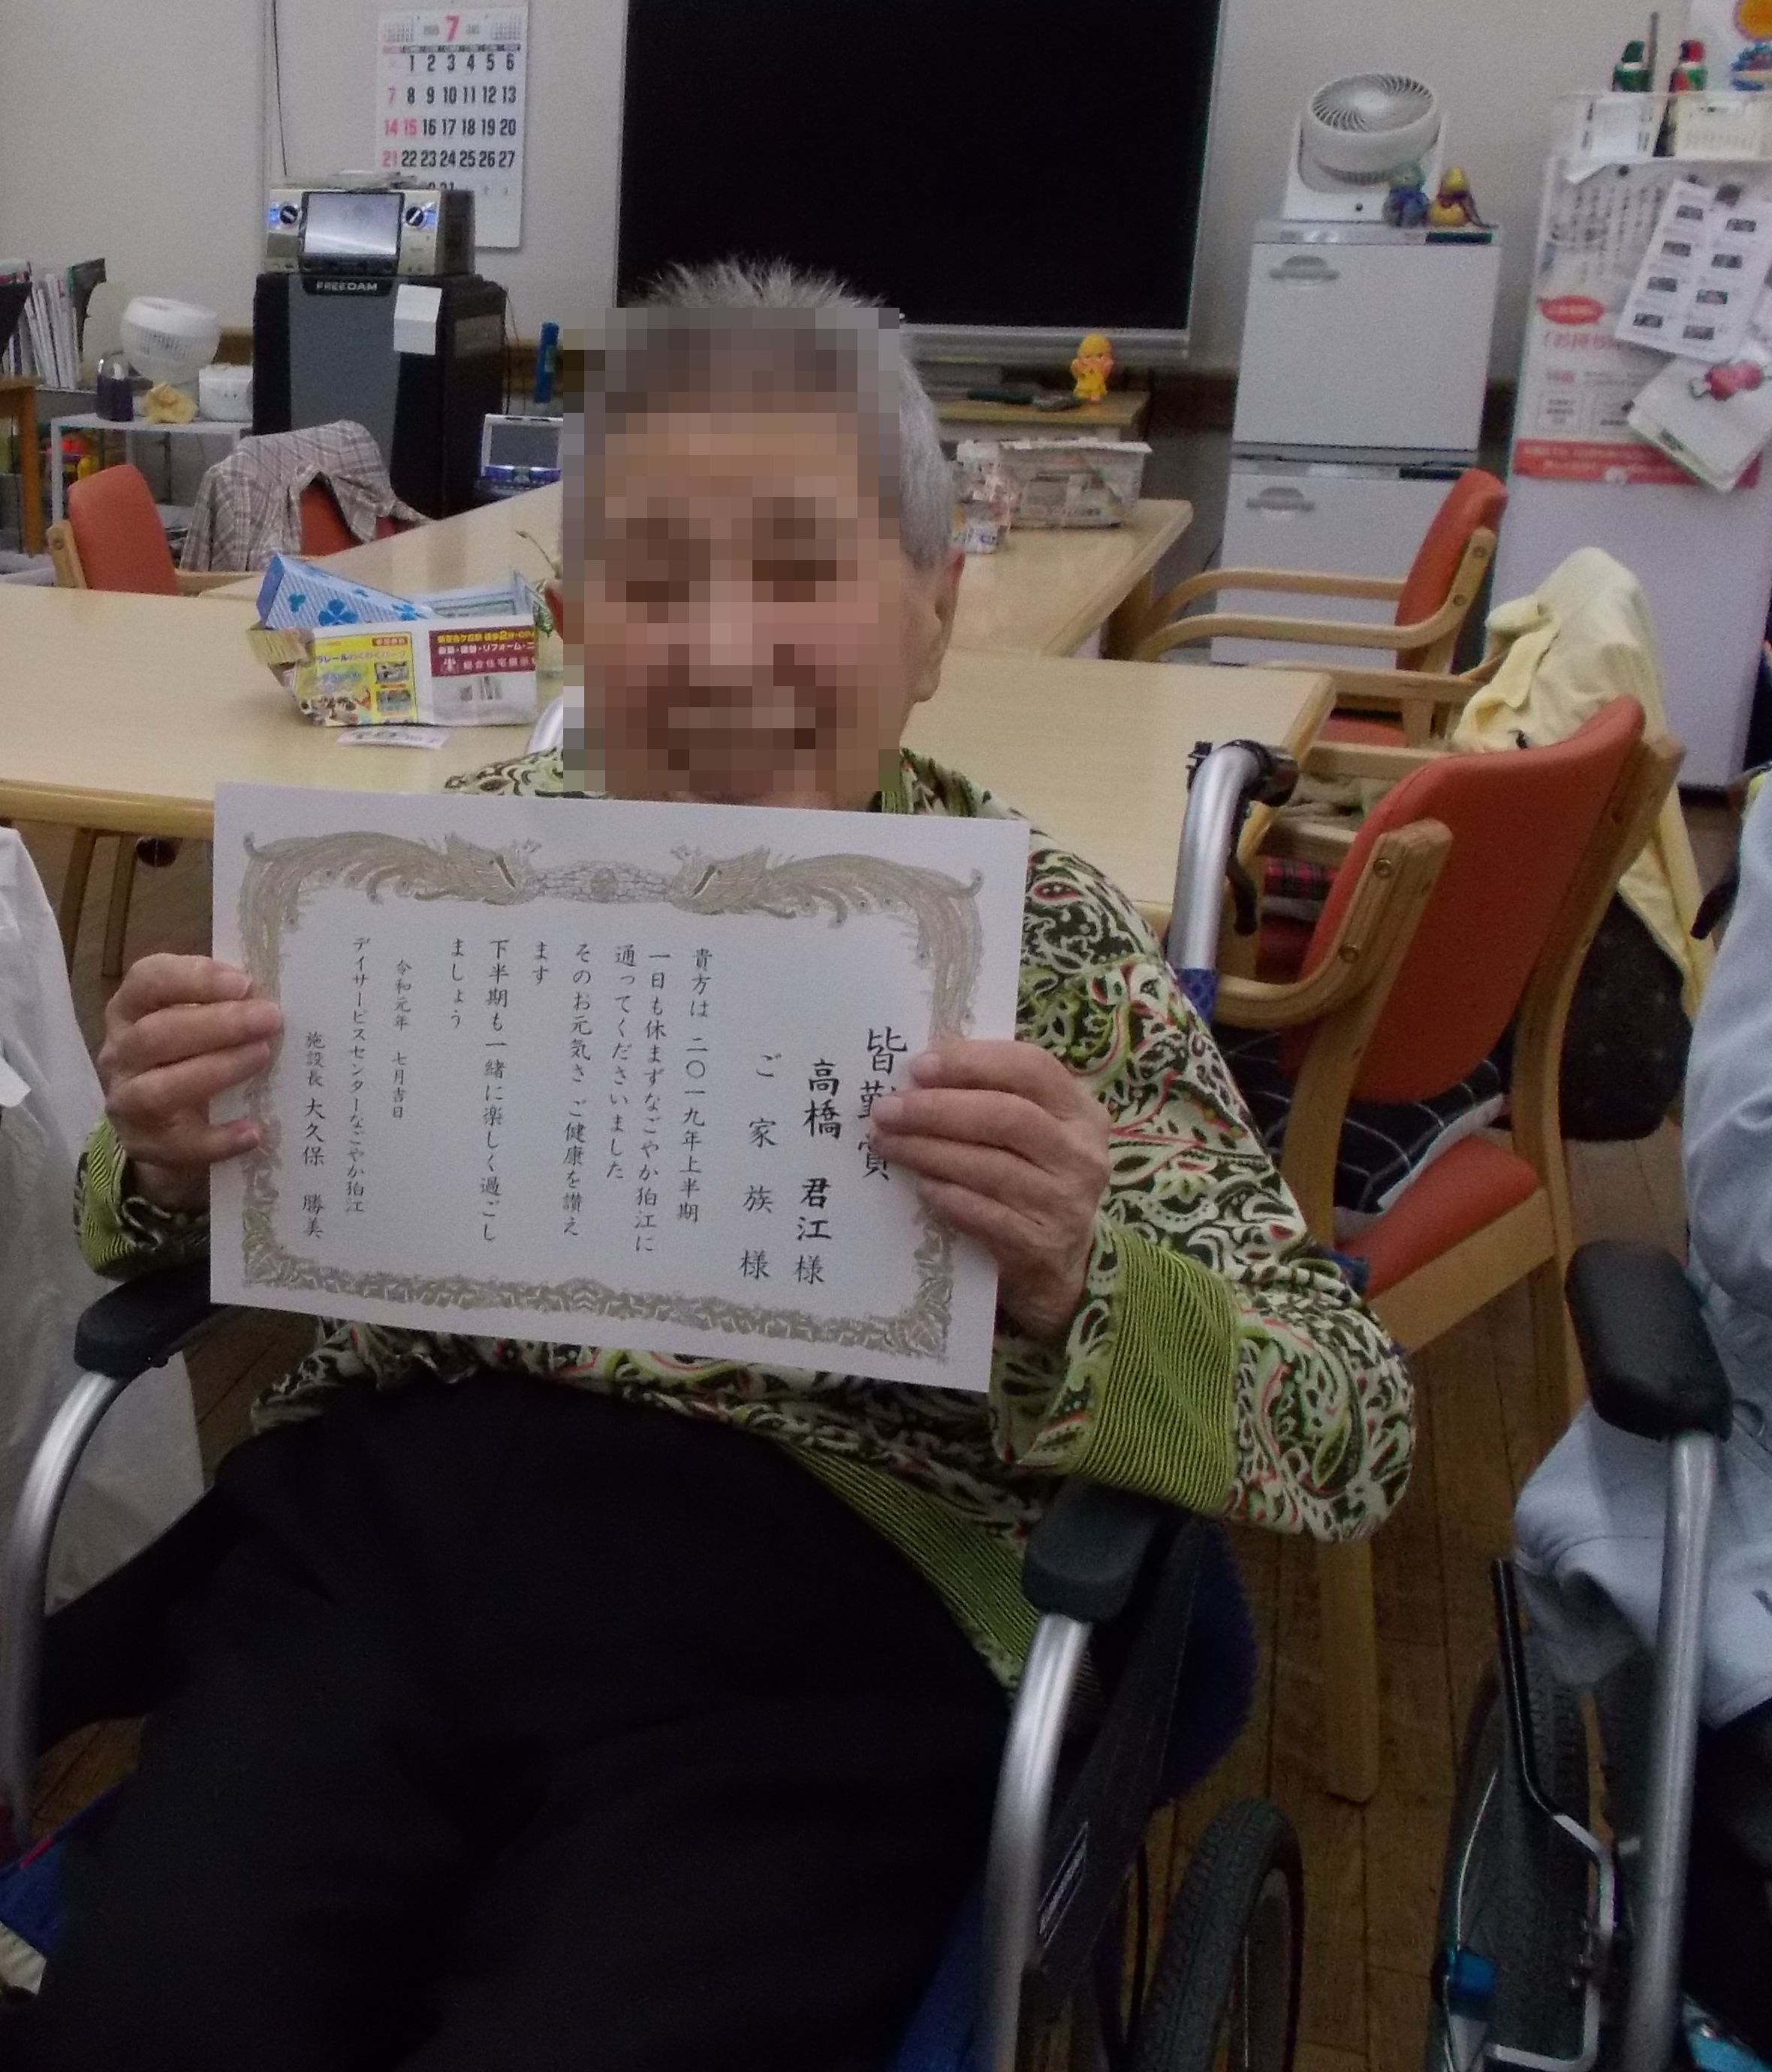 皆勤賞
高橋 君江様
ご家族様
貴方は 二〇一九年上半期
一日も休まずなごやか狛江に
通ってくださいました
そのお元気さ ご健康を讃え
ます
下半期も一緒に楽しく過ごし
ましょう
令和元年 七月吉日
デイサービスセンターなごやか狛江
施設長 大久保 勝美
7
1 2 3 4 5 6
7 8 9 10 11 12 13
14 15 16 17 18 19 20
21 22 23 24 25 26 27
FREEDAM
新築・建替・リフォーム・
総合住宅展示